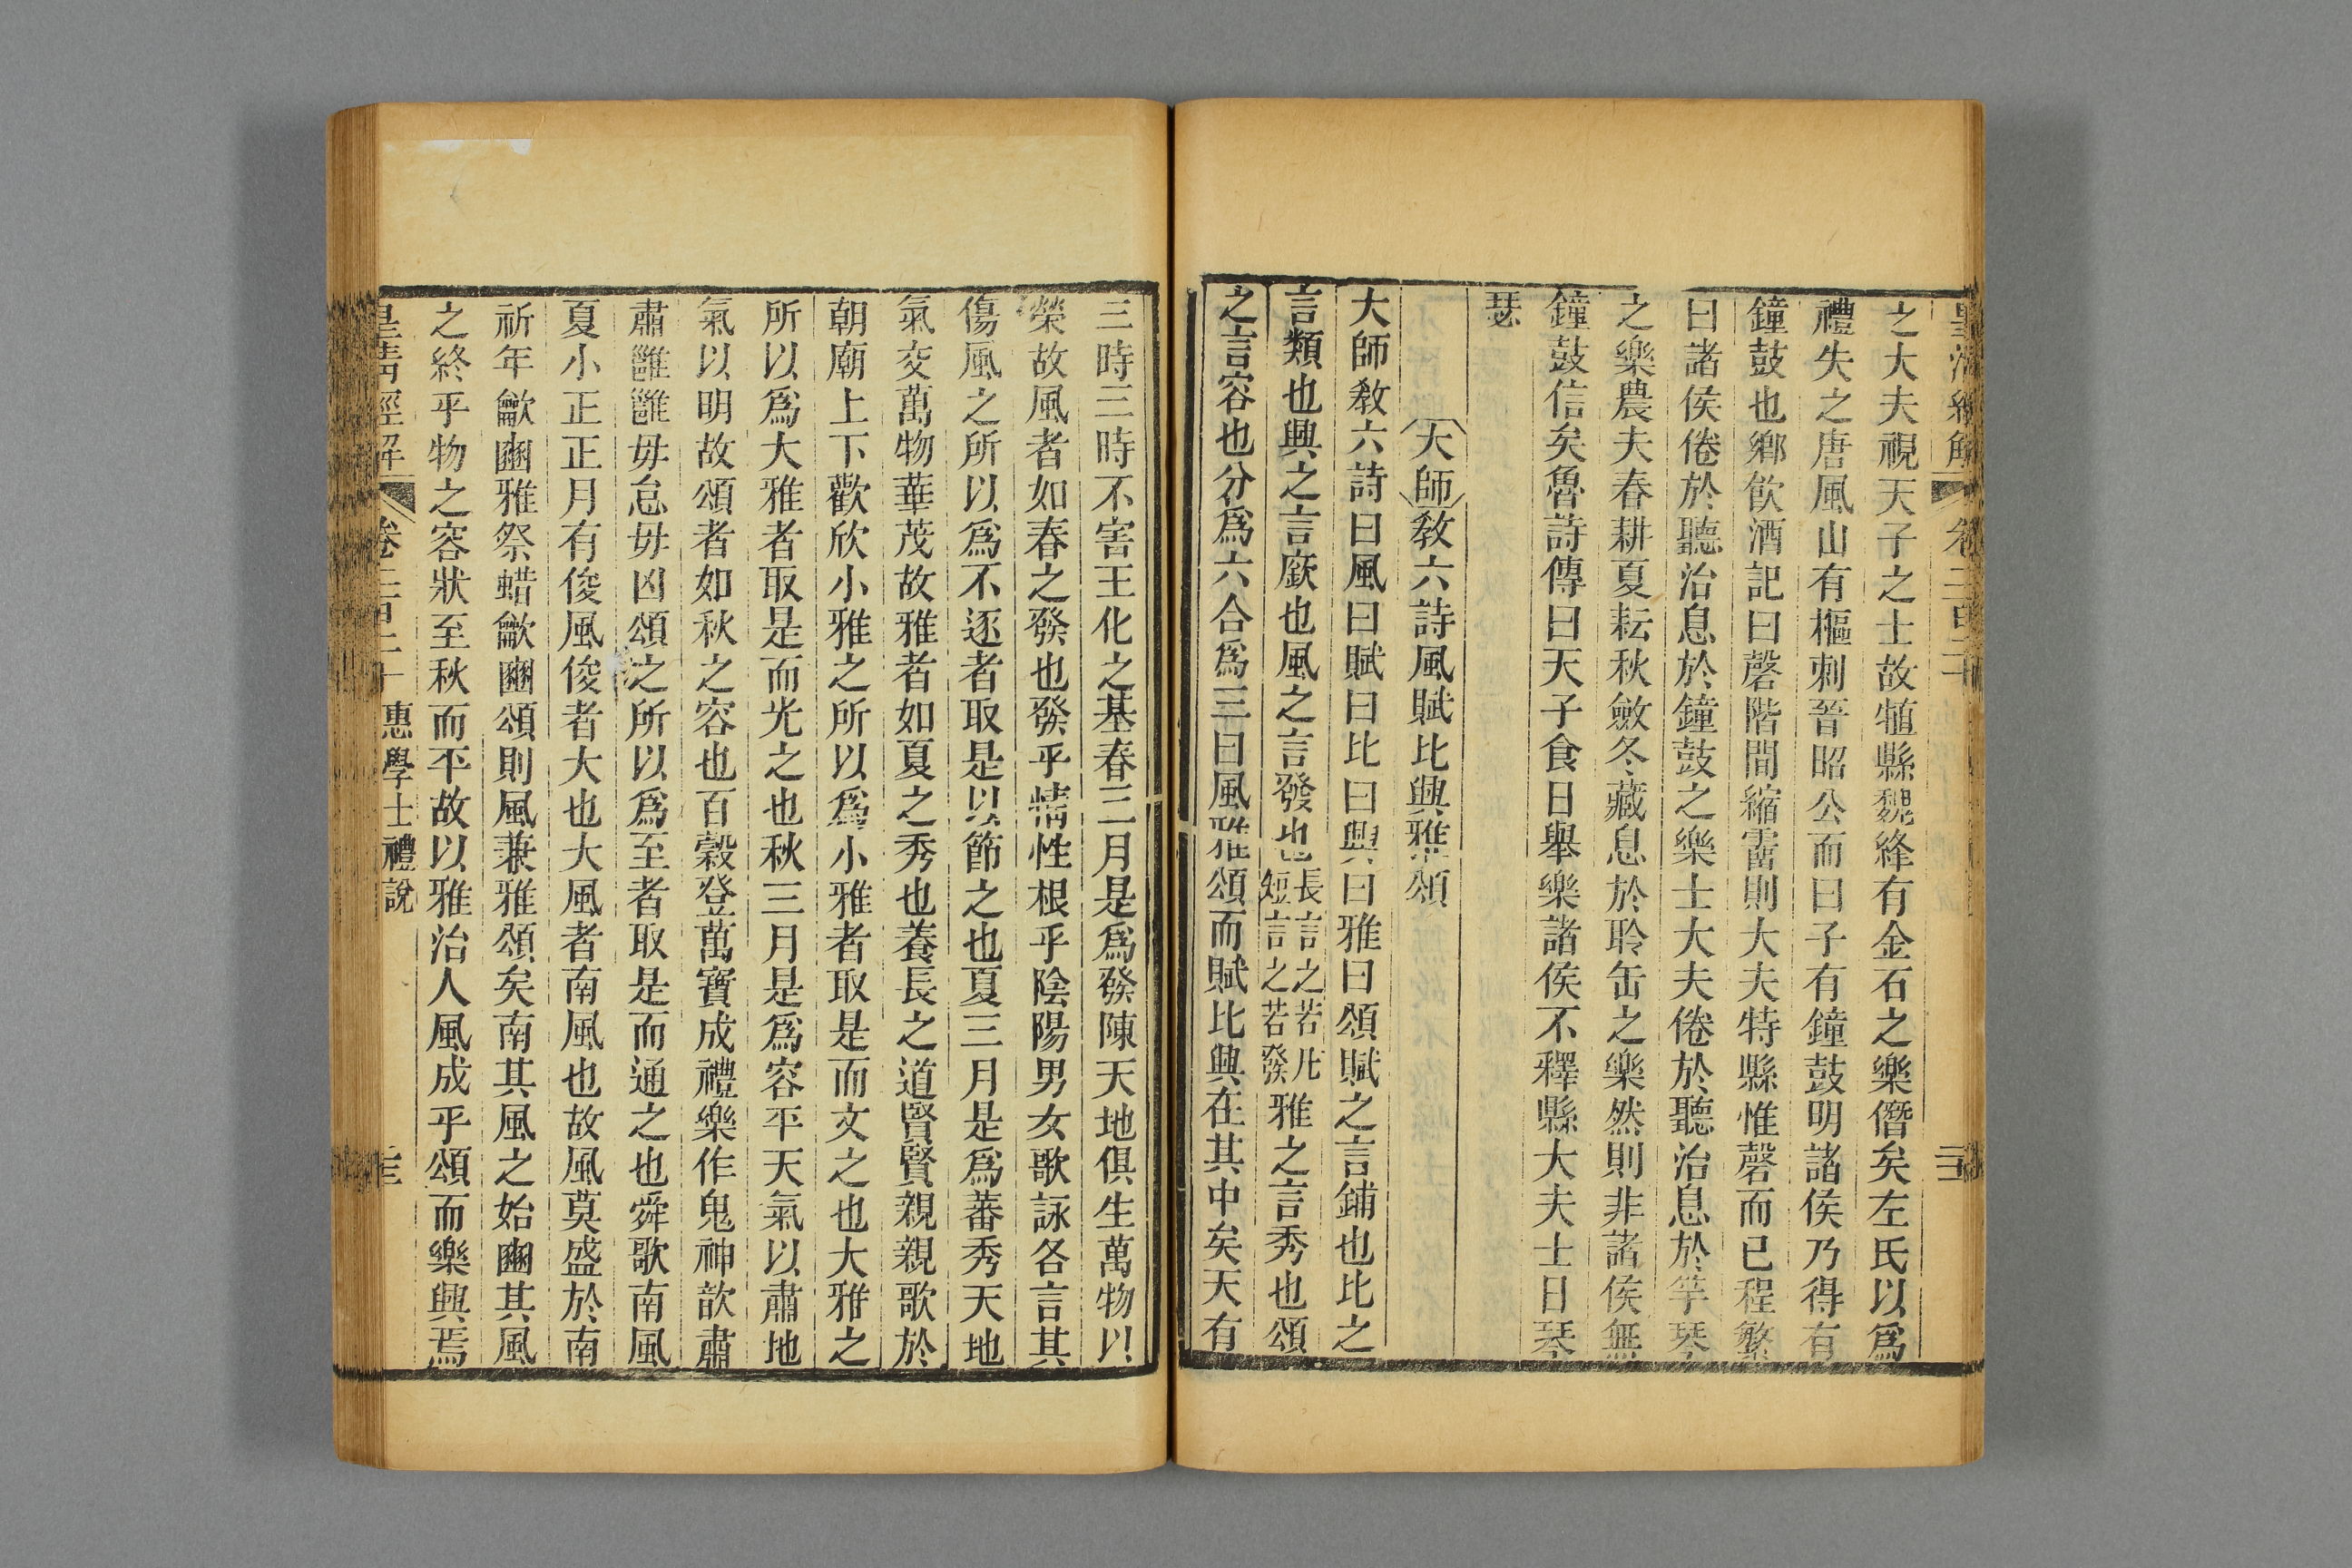 皇清經解 卷二百二十
之大夫視天子之士故犆縣魏絳有金石之樂僭矣左氏以爲
禮失之唐風山有樞刺晉昭公而曰子有鐘鼓明諸侯乃得有
鐘鼓也鄉飲酒記曰磬階間縮霤則大夫特縣惟磬而已程繁
曰諸侯倦於聽治息於鐘鼓之樂士大夫倦於聽治息於竽琴
之樂農夫春耕夏耘秋斂冬藏息於聆缶之樂然則非諸侯無
鐘鼓信矣魯詩傳曰天子食日舉樂諸侯不釋縣大夫士日琴
瑟
大師教六詩風賦比興雅頌
大師教六詩曰風曰賦曰比曰興曰雅曰頌賦之言鋪也比之
言類也興之言廞也風之言發也長言之若九短言之若發雅之言秀也頌
之言容也分爲六合爲三曰風雅頌而賦比興在其中矣天有
三時三時不害王化之基春三月是爲發陳天地俱生萬物以
榮故風者如春之發也發乎情性根乎陰陽男女歌詠各言其
傷風之所以爲不逐者取是以節之也夏三月是爲蕃秀天地
氣交萬物華茂故雅者如夏之秀也養長之道賢賢親親歌於
朝廟上下歡欣小雅之所以爲小雅者取是而文之也大雅之
所以爲大雅者取是而光之也秋三月是爲容平天氣以肅地
氣以明故頌者如秋之容也百穀登萬寶成禮樂作鬼神歆肅
肅雝雝毋怠毋凶頌之所以爲至者取是而通之也舜歌南風
夏小正正月有俊風俊者大也大風者南風也故風莫盛於南
祈年龡豳雅祭蜡龡豳頌則風兼雅頌矣南其風之始豳其風
之終乎物之容狀至秋而平故以雅治人風成乎頌而樂興焉
皇清經解 卷二百二十 惠學士禮說